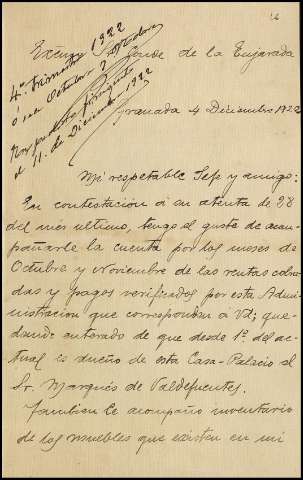 Excmo Sr Conde de la Enjarada
4º trimestre 1922
o sea Octubre y
11 de Diciembre 1922
Granada 4 Diciembre 1922
Mi respetable Jefe y amigo:
En contestación á su atenta de 28
del mes ultimo, tengo el gusto de acom
pañarle la cuenta por los meses de
Octubre y Noviembre de las rentas cobra
das y pagos verificados por esta Admi
nistracion que corresponden á Vd; que
dando enterado de que desde 1º del ac
tual es dueño de esta Casa-Palacio el
Sr. Marqués de Valdefuentes.
Tambien le acompaño inventario
de los muebles que existen en mi